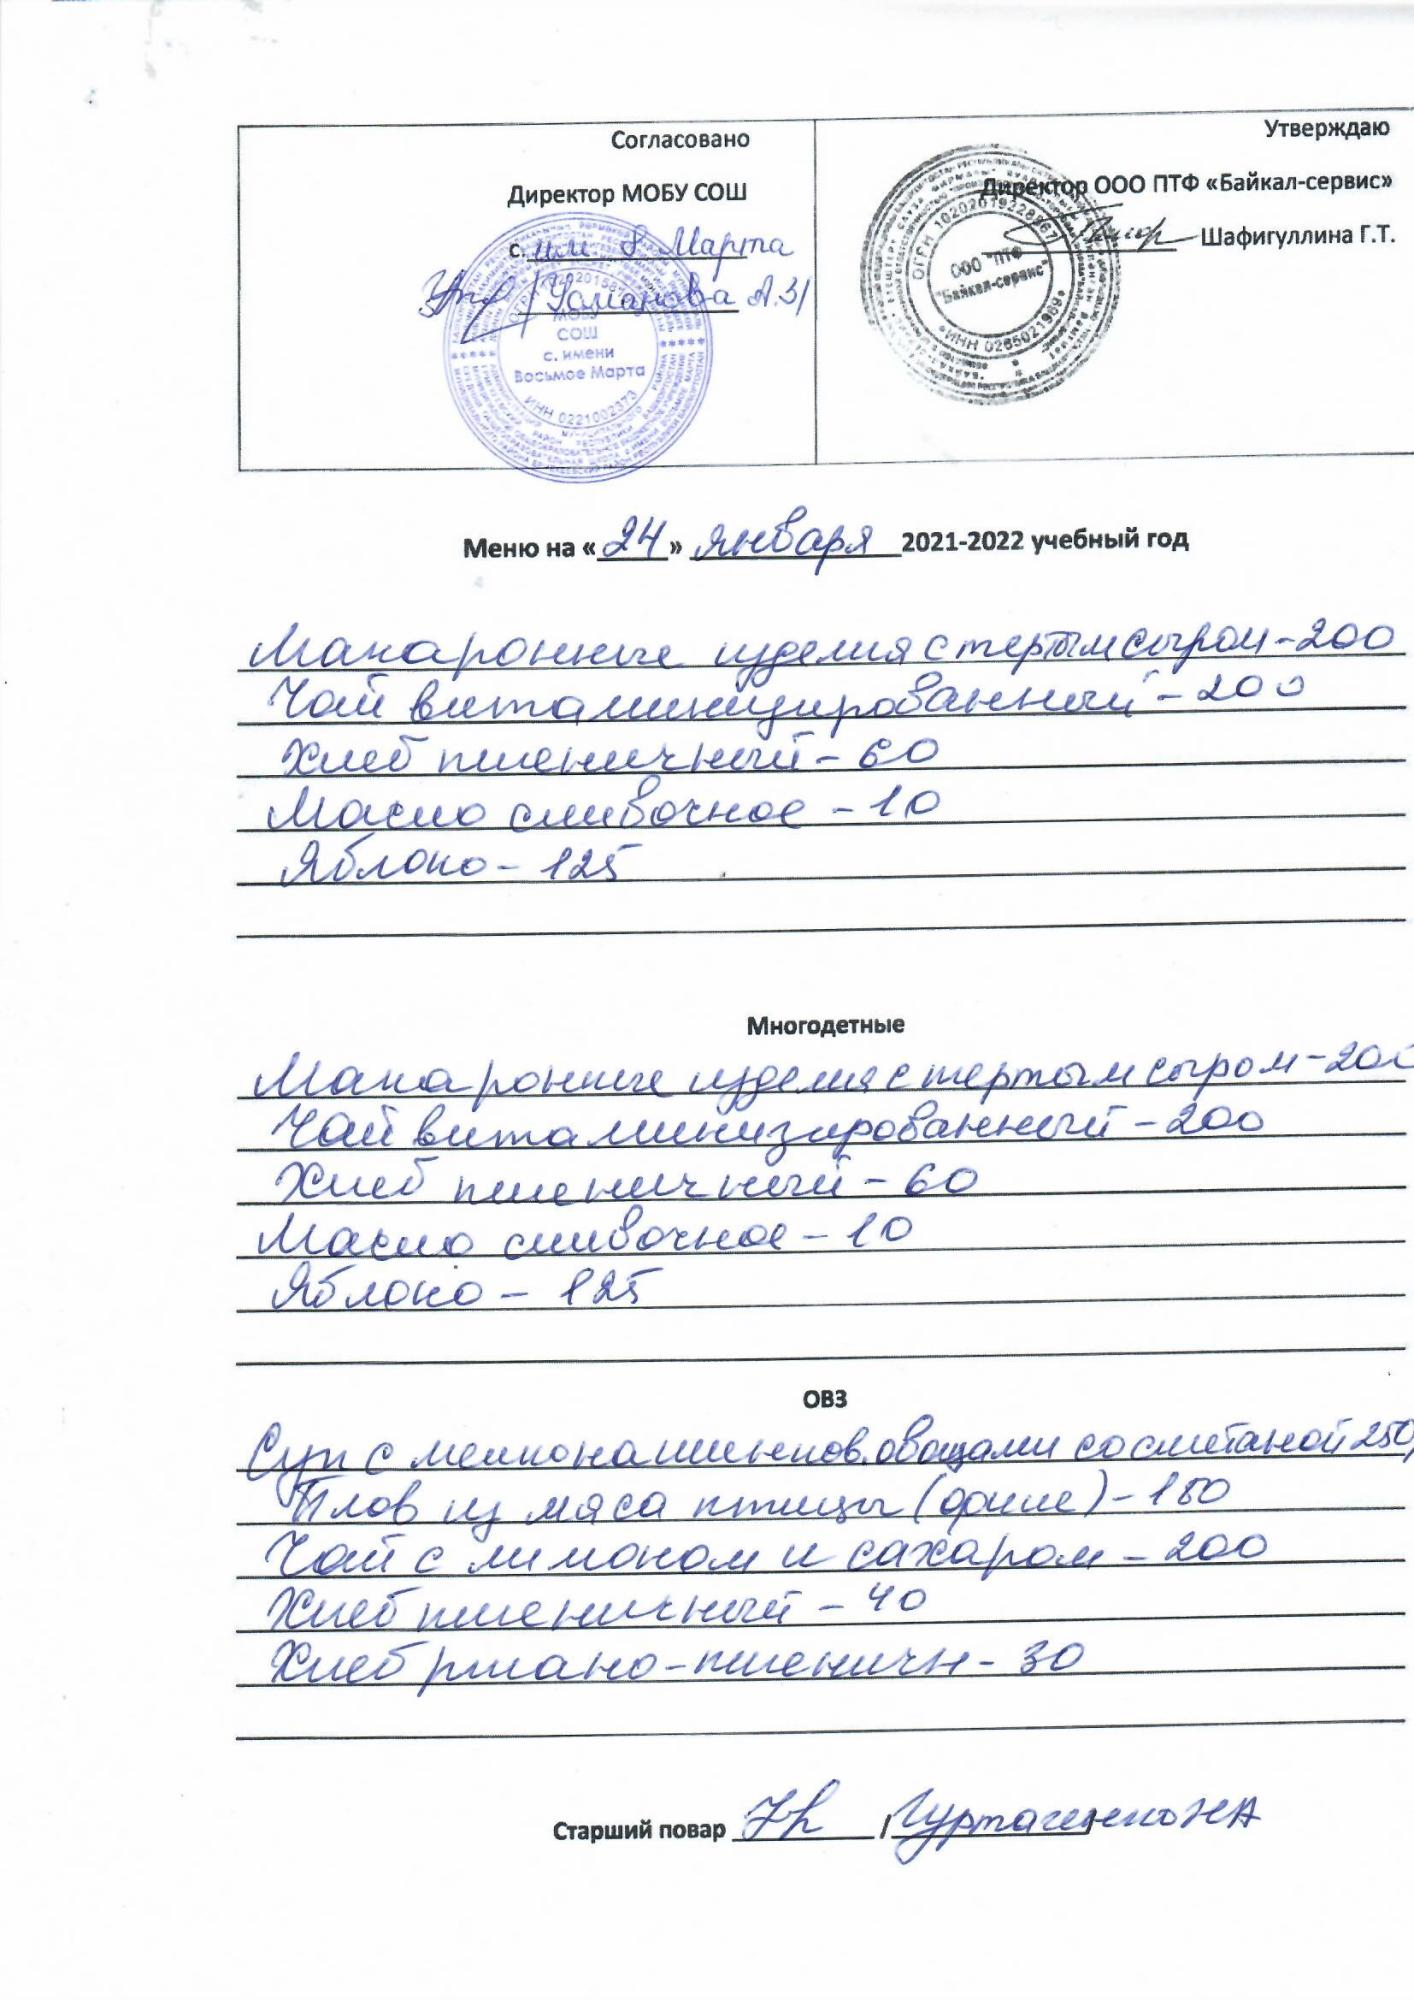 Согласовано
Директор МОБУ СОШ
с. им. 8 Марта
/Усманова А.З/
МОБУ
СОШ
с. имени
Восьмое Марта
ИНН 0221002373
Утверждаю
Директор ООО ПТФ «Байкал-сервис»
Шафигуллина Г.Т.
ОГРН 1020201922
ООО "ПТФ
"Байкал-сервис"
ИНН 0265021969
Меню на «24» января 2021-2022 учебный год
Макаронные изделия с тертым сыром-200
Чай витаминизированный - 200
Хлеб пшеничный - 60
Масло сливочное - 10
Яблоко - 125
Многодетные
Макаронные изделия с тертым сыром-200
Чай витаминизированный - 200
Хлеб пшеничный - 60
Масло сливочное - 10
Яблоко - 125
ОВЗ
Суп с мелконашинков. овощами со сметаной 250/
Плов из мяса птицы (филе) - 180
Чай с лимоном и сахаром - 200
Хлеб пшеничный - 40
Хлеб ржано-пшеничн - 30
Старший повар / НА